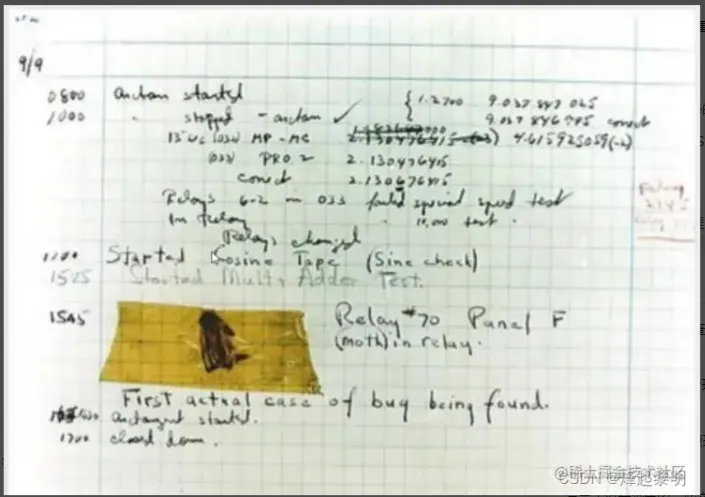 9/9
0800 Antan started
1000 " stopped - antan ✓ { 1.2700 9.037 847 025
9.037 846 795 correct
13"UC (032) MP - MC 2.130476415 (-3) 4.615925059(-2)
(033) PRO 2 2.130476415
correct 2.130676415
Relays 6-2 in 033 failed special speed test
In relay " 10,000 test.
Relays changed
1100 Started Cosine Tape (Sine check)
1525 Started Mult+ Adder Test.
1545 Relay #70 Panel F
(moth) in relay.
First actual case of bug being found.
antangent started.
1700 closed down.
Relay
@稀土掘金技术社区
CSDN @烽起黎明